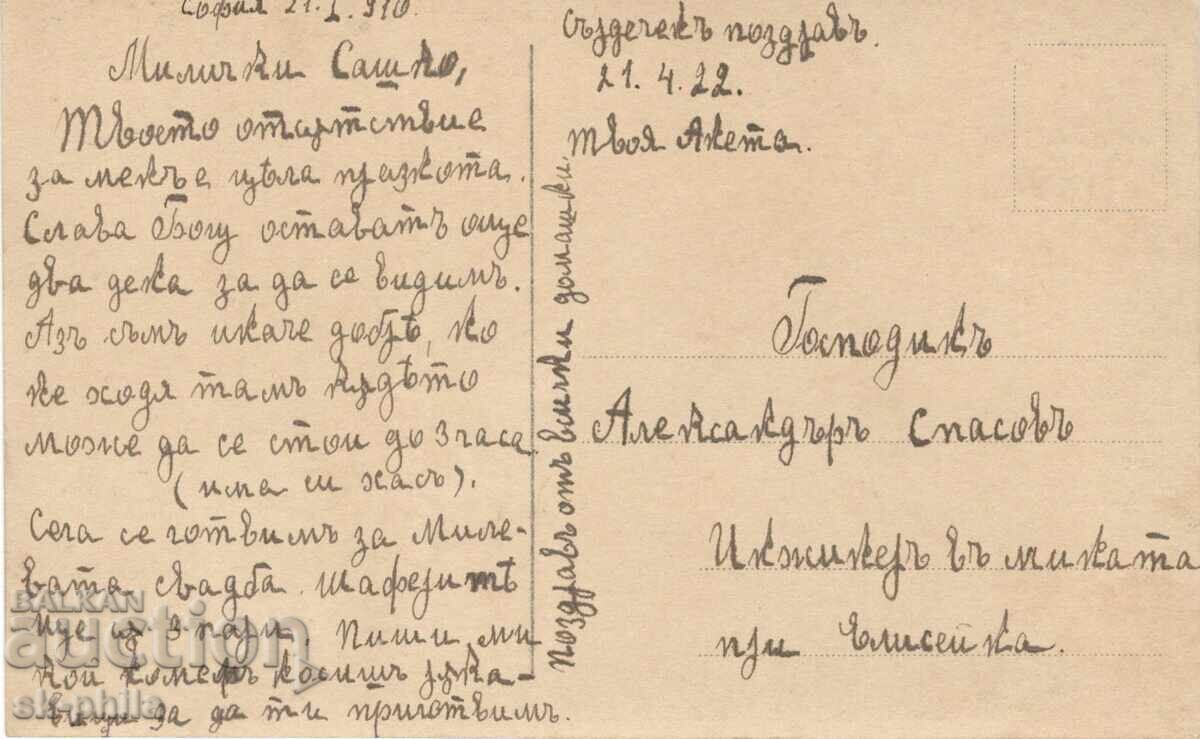 София 21. I. 910.
Милички Сашко,
Твоето отсътствие
за менъ е цѣла празнота.
Слава Богу оставатъ още
два дена за да се видимъ.
Азъ съмъ иначе добрѣ, но
не ходя тамъ кѫдѣто
може да се стои до 3 часа
(има ли хасъ).
Сега се готвимъ за Миле-
вата свадба. Шаферитѣ
ще сѫ 3 пари. Пиши ми
кой номеръ носишъ рѫка-
вици за да ти приготвимъ.
Поздравъ отъ всички домашни.
Сърдеченъ поздравъ.
21. 4. 22.
твоя Анета.
Господинъ
Александъръ Спасовъ
Инжинеръ въ мината
при Елисейна.
BALKAN
auction
sk-phila